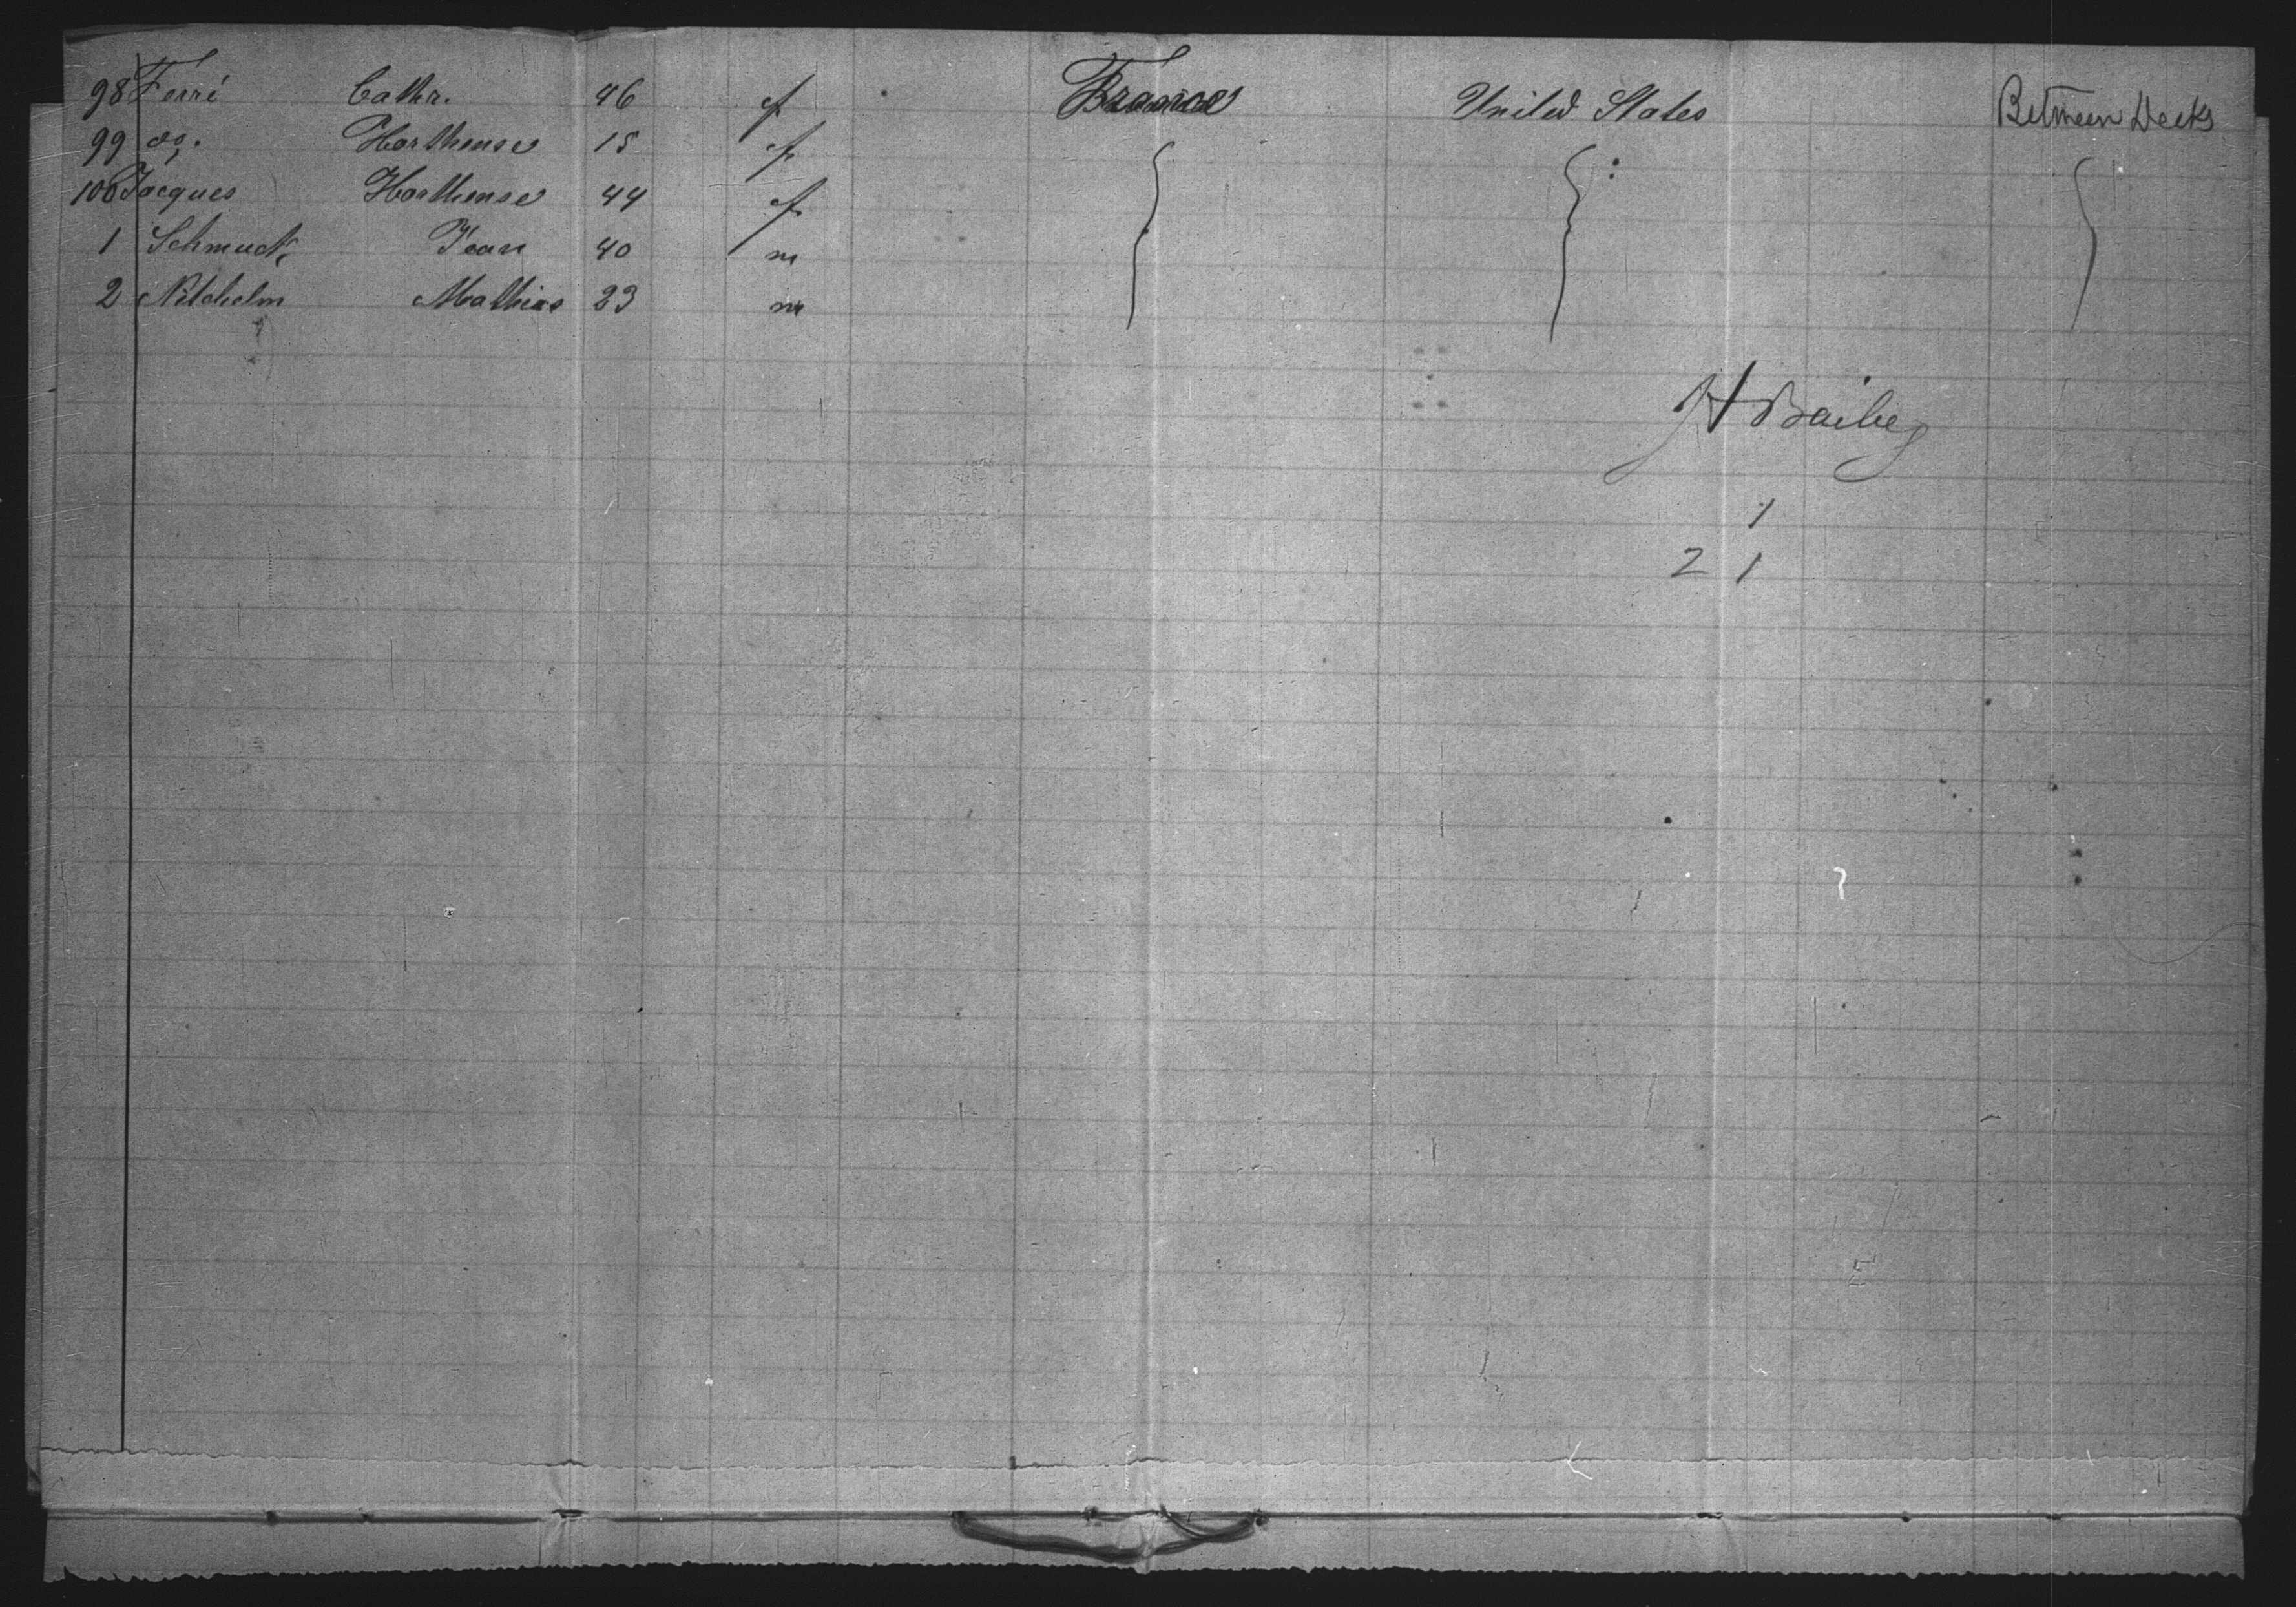 98 Ferri Cathr. 46 f France United States Between Decks
99 do. Horthense 15 f
100 Jacques Horthense 44 f
1 Schmuck Jean 40 m
2 Mathias 23 m
JH Bailey
1
2 1